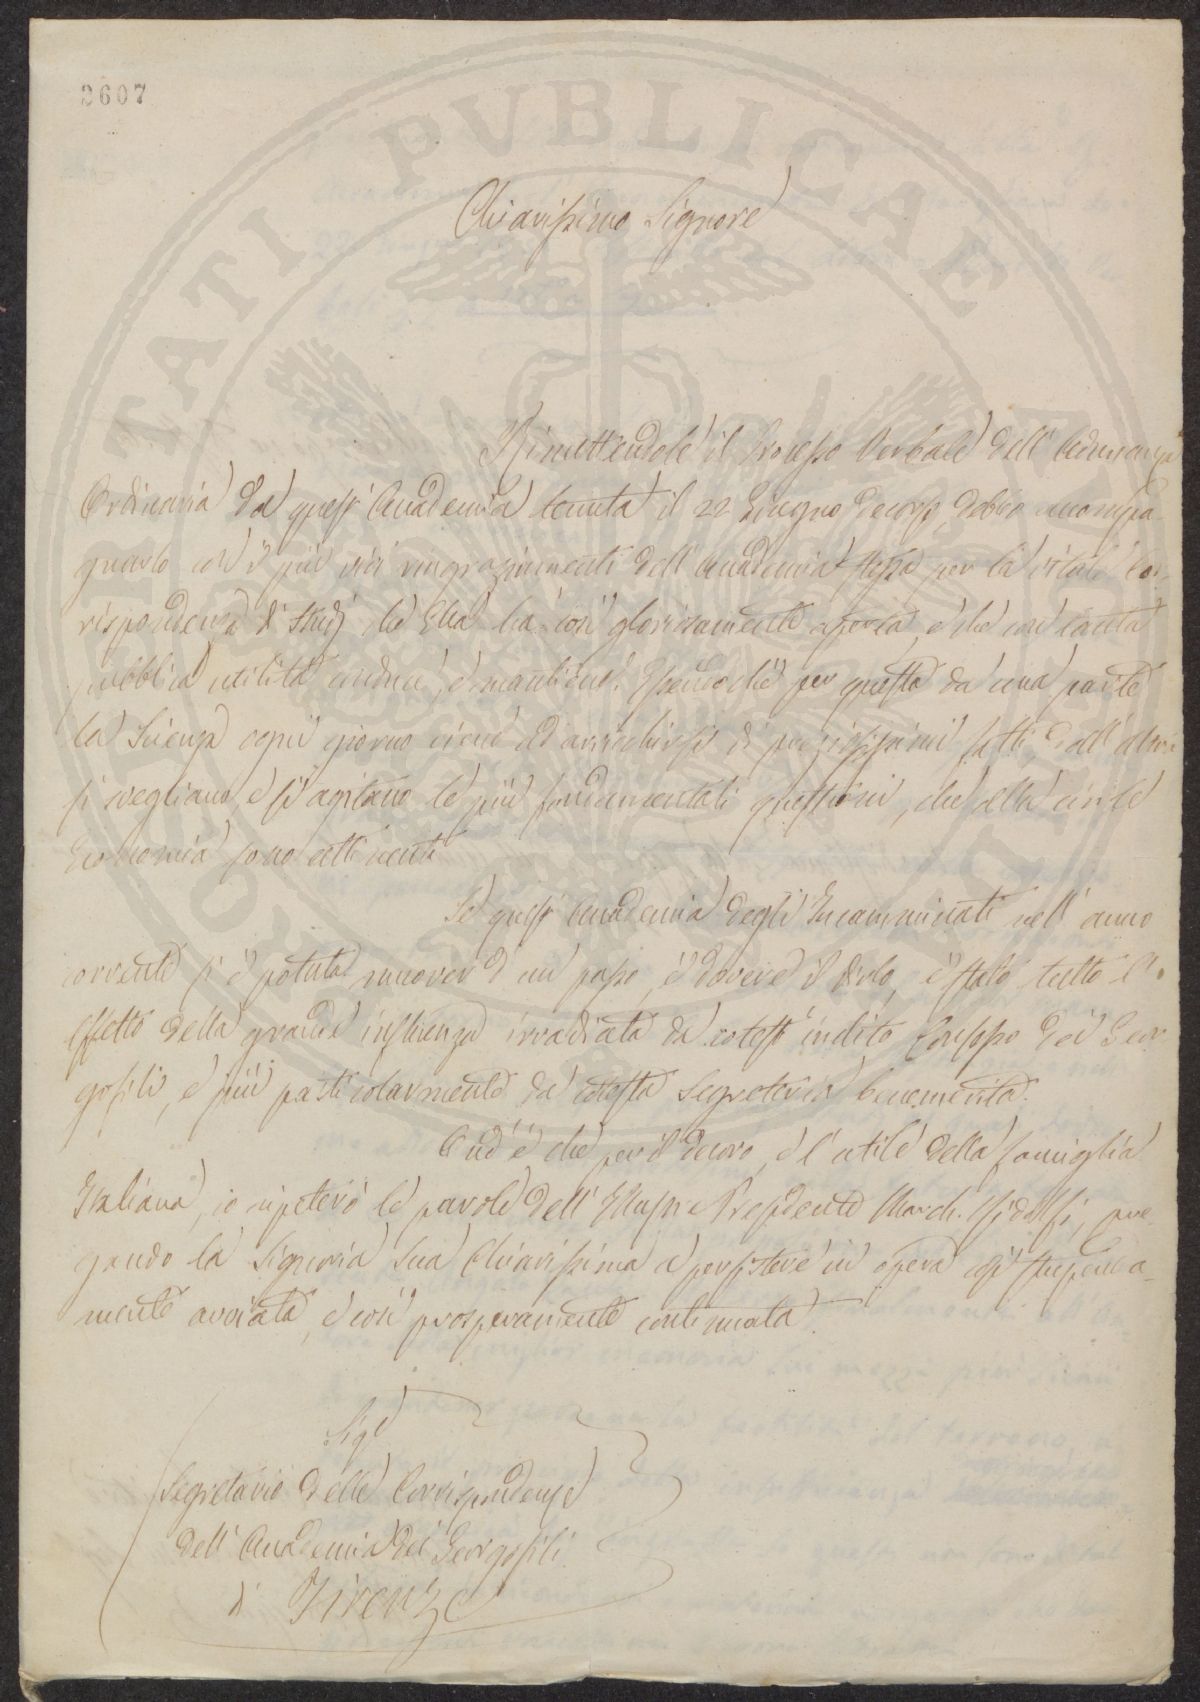 2607
PROSPERITATI PVBLICAE AVGENDAE
Chiarissimo Signore
Rimettendole il Processo Verbale dell'Adunanza
Ordinaria da quest'Accademia tenuta il 22 Giugno decorso, debbo accompa-
gnarlo coi più vivi ringraziamenti dell'Accademia stessa per la vitale Cor-
rispondenza di studj che Ella ha così gloriosamente aperta, e che con tanta
pubblica utilità conduce, e mantiene. Essendochè per questa da una parte
la Scienza ogni giorno viene ad arricchirsi di preziosissimi fatti, dall'altra
si svegliano, e si agitano le più fondamentali questioni, che alla civile
Economia sono attinenti
Se quest'Accademia degli Incamminati nell'anno
corrente si è potuta muover d'un passo, è dovere il dirlo, è stato tutto l'
effetto della grande influenza irradiata da cotest'inclito Consesso dei Geor-
gofili, e più particolarmente da cotesta Segreteria benemerita.
Ond'è che per il decoro, e l'utile della famiglia
Italiana, io ripeterò le parole dell'Illustre Presidente March. Ridolfi, pre-
gando la Signoria Sua Chiarissima a persistere in opera sì stupenda-
mente avviata, e così prosperamente continuata.
Sige
Segretario delle Corrispondenze
dell'Accademia dei Georgofili
di Firenze